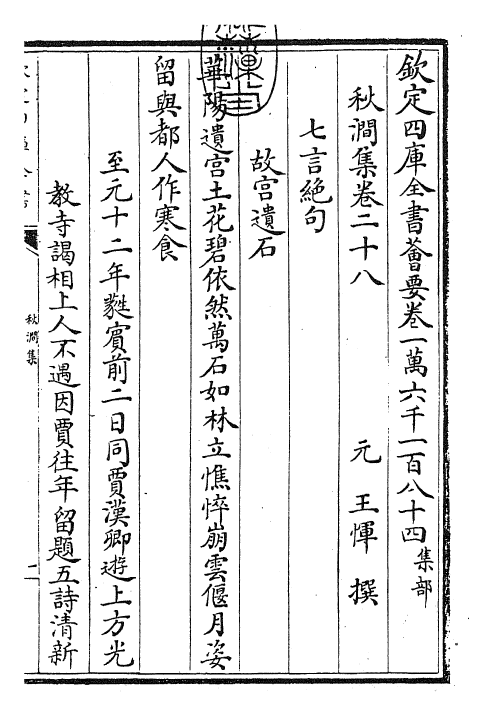 欽定四庫全書薈要卷一萬六千一百八十四 集部
秋澗集卷二十八
元 王惲 撰
七言絶句
故宫遺石
華陽遺宫土花碧依然萬石如林立憔悴崩雲偃月姿
留與都人作寒食
至元十二年蕤賓前二日同賈漢卿遊上方光
教寺謁相上人不遇因賈往年留題五詩清新
秋澗集